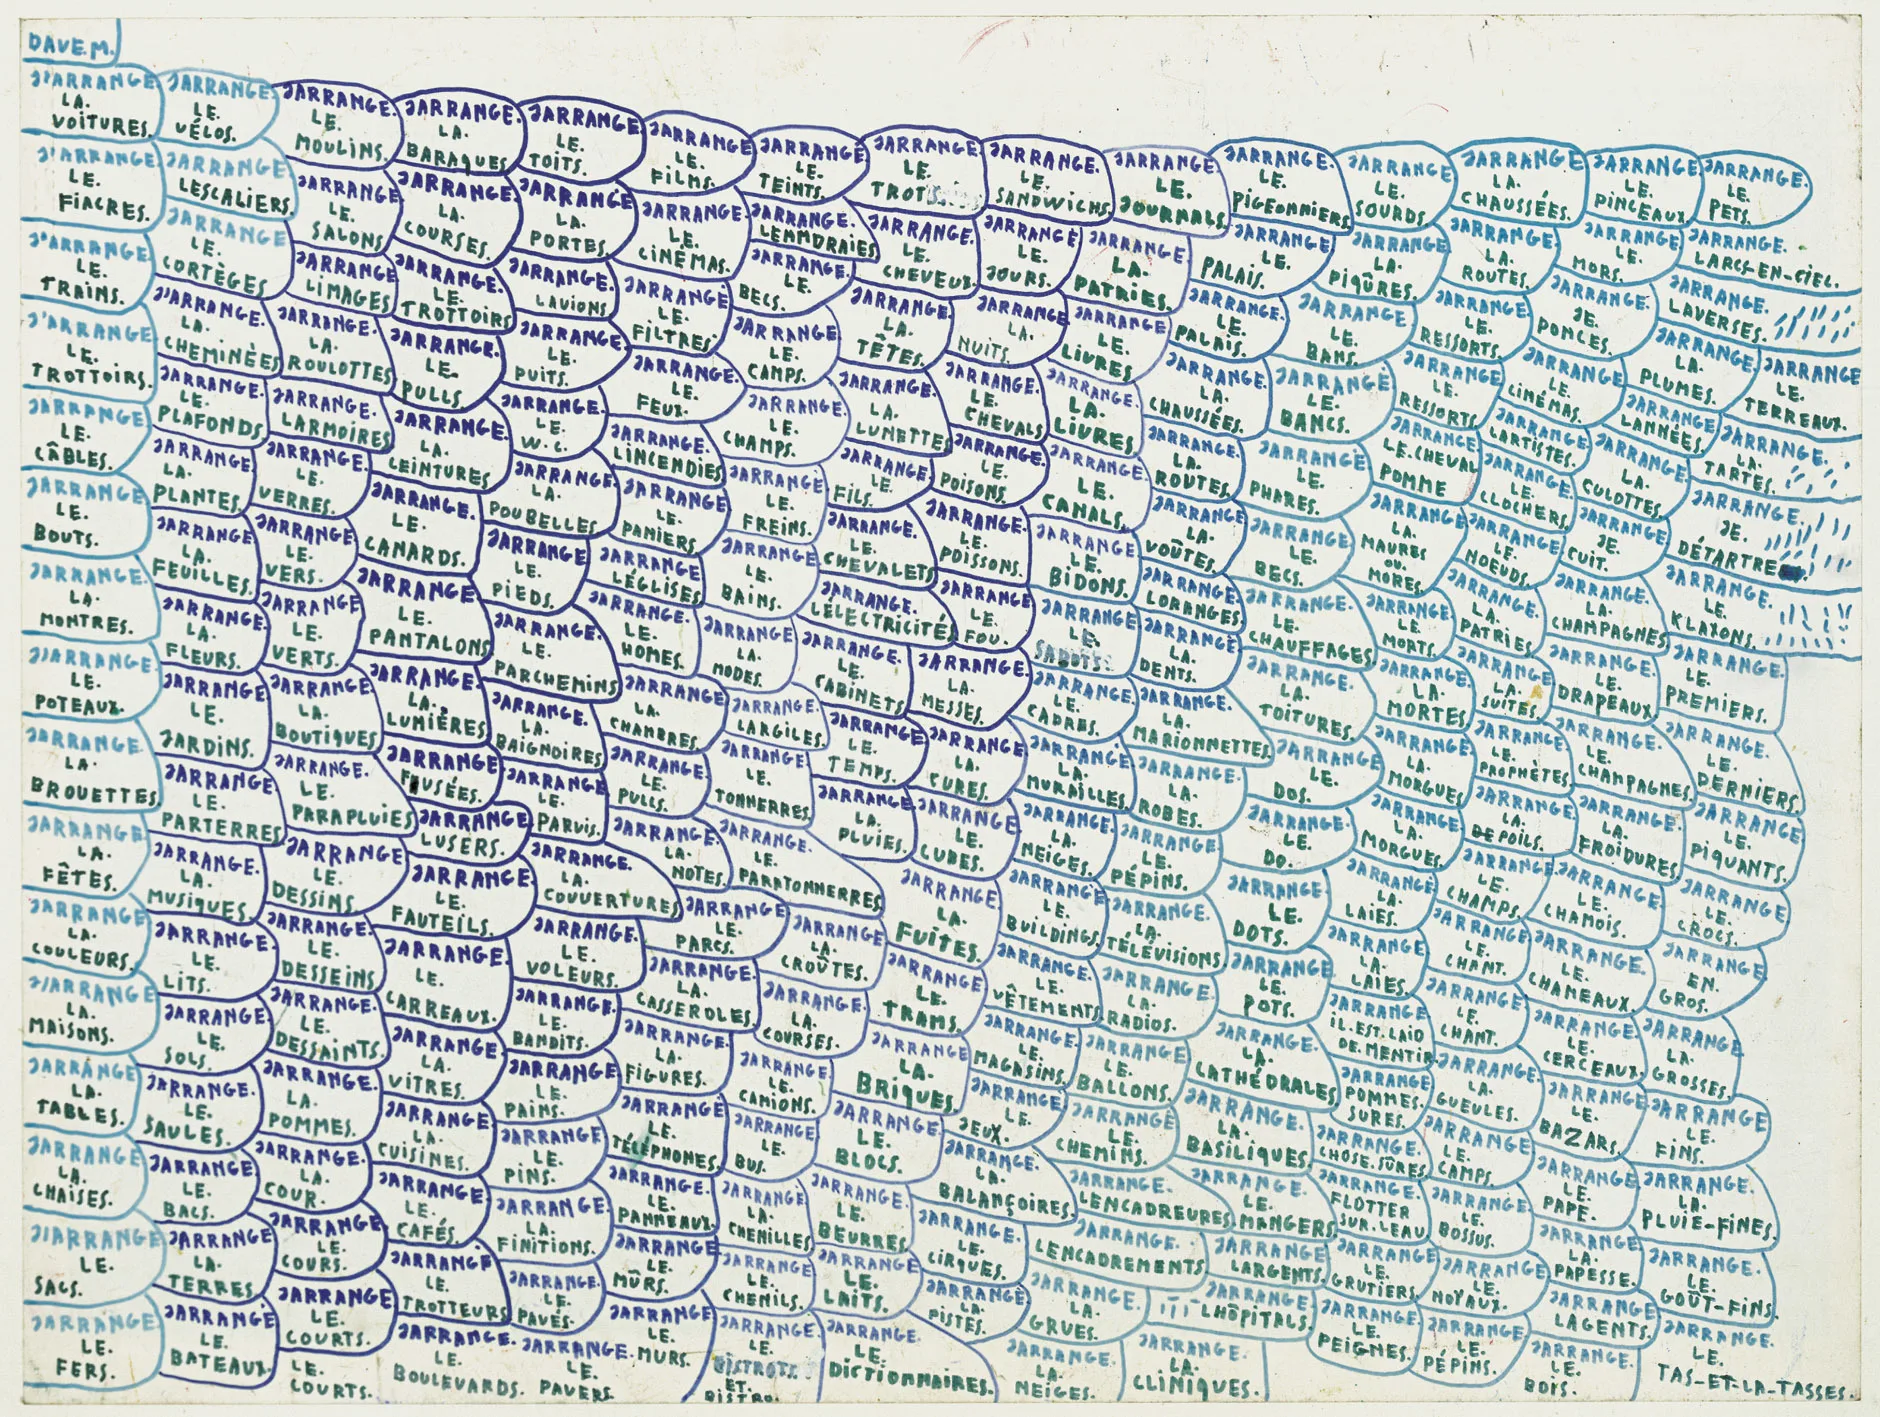 DAVE.M.
J'ARRANGE.
LA.
VOITURES.
J'ARRANGE.
LE.
FIACRES.
J'ARRANGE.
LE.
TRAINS.
J'ARRANGE.
LE.
TROTTOIRS.
JARRANGE.
LE.
CÂBLES.
JARRANGE.
LE.
BOUTS.
JARRANGE.
LA.
MONTRES.
J'ARRANGE.
LE.
POTEAUX.
JARRANGE.
LA.
BROUETTES.
JARRANGE.
LA.
FÊTES.
JARRANGE.
LA.
COULEURS.
J'ARRANGE.
LA.
MAISONS.
JARRANGE.
LA.
TABLES.
JARRANGE.
LA.
CHAISES.
J'ARRANGE.
LE.
SACS.
JARRANGE.
LE.
FERS.
JARRANGE.
LE.
VÉLOS.
JARRANGE.
LESCALIERS.
JARRANGE.
LE.
CORTÈGES
J'ARRANGE.
LA.
CHEMINÈES
JARRANGE.
LE.
PLAFONDS
JARRANGE.
LA.
PLANTES.
JARRANGE.
LA.
FEUILLES.
JARRANGE.
LA.
FLEURS.
JARRANGE.
LE.
JARDINS.
JARRANGE.
LE.
PARTERRES
JARRANGE.
LA.
MUSIQUES.
JARRANGE.
LE.
LITS.
JARRANGE.
LE.
SOLS.
JARRANGE.
LE.
SAULES.
JARRANGE.
LE.
BACS.
JARRANGE.
LA.
TERRES
JARRANGE.
LE.
BATEAUX.
JARRANGE.
LE.
MOULINS.
JARRANGE.
LE.
SALONS
JARRANGE.
LIMAGES
JARRANGE.
LA.
ROULOTTES
JARRANGE.
LARMOIRES
JARRANGE.
LE.
VERRES.
JARRANGE.
LE.
VERS.
JARRANGE.
LE.
VERTS.
JARRANGE.
LA.
BOUTIQUES
JARRANGE.
LE.
PARAPLUIES
JARRANGE.
LE.
DESSINS.
JARRANGE.
LE.
DESSEINS
JARRANGE.
LE.
DESSAINTS.
JARRANGE.
LA.
POMMES.
JARRANGE.
LA.
COUR.
JARRANGE.
LE.
COURS.
JARRANGE.
LE.
COURTS.
LE.
COURTS.
JARRANGE.
LA.
BARAQUES
JARRANGE.
LA.
COURSES.
JARRANGE.
LE.
TROTTOIRS
JARRANGE.
LE.
PULLS.
JARRANGE.
LA.
CEINTURES
JARRANGE.
LE.
CANARDS.
JARRANGE.
LE.
PANTALONS
JARRANGE.
LA.
LUMIÈRES
JARRANGE.
FUSÉES.
JARRANGE.
LUSERS.
JARRANGE.
LE.
FAUTEILS.
JARRANGE.
LE.
CARREAUX.
JARRANGE.
LA.
VITRES.
JARRANGE.
LA.
CUISINES.
JARRANGE.
LE.
CAFÉS.
JARRANGE.
LE.
TROTTEURS
JARRANGE.
LE.
BOULEVARDS.
JARRANGE.
LE.
TOITS.
JARRANGE.
LA.
PORTES.
JARRANGE.
LAVIONS
JARRANGE.
LE.
PUITS.
JARRANGE.
LE.
W.C.
JARRANGE.
LA.
POUBELLES
JARRANGE
LE.
PIEDS.
JARRANGE.
LE.
PARCHEMINS
JARRANGE.
LA.
BAIGNOIRES
JARRANGE.
LE.
PARVIS.
JARRANGE.
LA.
COUVERTURES
JARRANGE.
LE.
VOLEURS.
JARRANGE.
LE.
BANDITS.
JARRANGE.
LE.
PAINS.
JARRANGE.
LE.
PINS.
JARRANGE.
LA.
FINITIONS.
JARRANGE.
LE.
PAVÉS.
JARRANGE.
LE.
PAVERS.
JARRANGE.
LE.
FILMS.
JARRANGE.
LE.
CINÉMAS.
JARRANGE.
LE.
FILTRES
JARRANGE.
LE.
FEUX.
JARRANGE.
LINCENDIES
JARRANGE.
LE.
PANIERS.
JARRANGE.
LÉGLISES
JARRANGE.
LE.
HOMES.
JARRANGE.
LA.
CHAMBRES.
JARRANGE.
LE.
PULLS.
JARRANGE.
LA.
NOTES.
JARRANGE.
LE.
PARCS.
JARRANGE.
LA.
CASSEROLES.
JARRANGE.
LA.
FIGURES.
JARRANGE.
LE.
TÉLÉPHONES.
JARRANGE.
LE.
PANNEAUX.
JARRANGE.
LE.
MÛRS.
JARRANGE
LE.
MURS.
JARRANGE.
LE.
TEINTS.
JARRANGE.
LEMMDRAIES
JARRANGE.
LE.
BECS.
JARRANGE.
LE.
CAMPS.
JARRANGE.
LE.
CHAMPS.
JARRANGE.
LE.
FREINS.
JARRANGE.
LE.
BAINS.
JARRANGE.
LA.
MODES.
JARRANGE.
LARGILES.
JARRANGE.
LE.
TONNERRES.
JARRANGE.
LE.
PARATONNERRES.
JARRANGE.
LA.
CROÛTES.
JARRANGE.
LA.
COURSES.
JARRANGE.
LE.
CAMIONS.
JARRANGE.
LE.
BUS.
JARRANGE.
LA.
CHENILLES
JARRANGE.
LE.
CHENILS.
JARRANGE.
LE.
BISTROTS.
ET.
BISTRO.
JARRANGE.
LE.
TROT
JARRANGE.
LE.
CHEVEUX.
JARRANGE.
LA.
TÊTES.
JARRANGE.
LA.
LUNETTES
JARRANGE.
LE.
FILS.
JARRANGE.
LE.
CHEVALETS
JARRANGE.
LÉLECTRICITÉ.
JARRANGE.
LE.
CABINETS.
JARRANGE
LE.
TEMPS.
JARRANGE.
LA.
PLUIES.
JARRANGE.
LA.
FUITES.
JARRANGE.
LE.
TRAMS.
JARRANGE
LA.
BRIQUES.
JARRANGE.
LE.
BLOCS.
JARRANGE.
LE.
BEURRES.
JARRANGE.
LE.
LAITS.
JARRANGE.
LE.
DICTIONNAIRES.
JARRANGE.
LE.
SANDWICHS.
JARRANGE
LE.
JOURS.
JARRANGE.
LA.
NUITS.
JARRANGE.
LE.
CHEVALS
JARRANGE.
LE.
POISONS.
JARRANGE.
LE.
POISSONS.
JARRANGE.
LE.
FOU.
JARRANGE.
LA.
MESSES.
JARRANGE.
LA.
CURES.
JARRANGE.
LE.
CUBES.
JARRANGE.
LE.
BUILDINGS.
JARRANGE.
LE.
VÊTEMENTS
JARRANGE.
LE.
MAGASINS.
JARRANGE.
LE.
JEUX.
JARRANGE.
LA.
BALANÇOIRES.
JARRANGE.
LE.
CIRQUES.
JARRANGE.
LA.
PISTES.
JARRANGE.
LE.
JOURNALS.
JARRANGE.
LA.
PATRIES.
JARRANGE.
LE.
LIVRES
JARRANGE.
LA.
LIVRES
JARRANGE.
LE.
CANALS.
JARRANGE.
LE.
BIDONS.
JARRANGE.
LE.
SABOTS.
JARRANGE.
LE.
CADRES.
JARRANGE.
LA.
MURAILLES.
JARRANGE.
LA.
NEIGES.
JARRANGE.
LE.
PÉPINS.
JARRANGE.
LA.
TÉLÉVISIONS.
JARRANGE.
LA.
RADIOS.
JARRANGE.
LE.
BALLONS.
JARRANGE
LE.
CHEMINS.
JARRANGE.
LENCADREURES
JARRANGE.
LENCADREMENTS
JARRANGE.
LA.
GRUES.
JARRANGE.
LA.
NEIGES.
JARRANGE.
LE.
PIGEONNIERS
JARRANGE
LE.
PALAIS.
JARRANGE.
LE.
PALAIS.
JARRANGE.
LA.
CHAUSSÉES.
JARRANGE.
LA.
ROUTES.
JARRANGE.
LA.
VOÛTES.
JARRANGE.
LORANGES
JARRANGE.
LA.
DENTS.
JARRANGE.
LA.
MARIONNETTES.
JARRANGE.
LA.
ROBES.
JARRANGE.
LE.
DO.
JARRANGE.
LE.
DOTS.
JARRANGE.
LE.
POTS.
JARRANGE.
LA.
CATHÉDRALES
JARRANGE.
LA.
BASILIQUES
JARRANGE.
LE.
MANGERS.
JARRANGE.
LARGENTS.
JARRANGE.
LHÔPITALS.
JARRANGE.
LA.
CLINIQUES.
JARRANGE.
LE.
SOURDS.
JARRANGE.
LA.
PIQÛRES.
JARRANGE.
LE.
BANS.
JARRANGE
LE.
BANCS.
JARRANGE.
LE.
PHARES.
JARRANGE.
LE.
BECS.
JARRANGE.
LE.
CHAUFFAGES
JARRANGE.
LA.
TOITURES.
JARRANGE.
LE.
DOS.
JARRANGE.
LA.
LAIES.
JARRANGE.
LA.
LAIES.
JARRANGE.
IL.EST.LAID
DE.MENTIR
JARRANGE.
POMMES.
SURES.
JARRANGE.
CHOSE.SÛRES
JARRANGE.
FLOTTER
SUR.LEAU
JARRANGE.
LE.
GRUTIERS.
JARRANGE.
LE.
PEIGNES.
JARRANGE
LA.
CHAUSSÉES.
JARRANGE
LA.
ROUTES.
JARRANGE.
LE.
RESSORTS.
JARRANGE.
LE.
RESSORTS
JARRANGE
LE.CHEVAL
POMME
JARRANGE
LA.
MAURES
OU.
MORES.
JARRANGE.
LE.
MORTS.
JARRANGE.
LA.
MORTES
JARRANGE.
LA.
MORGUES
JARRANGE.
LA.
MORGUES.
JARRANGE
LE.
CHAMPS.
JARRANGE.
LE.
CHANT.
JARRANGE
LE.
CHANT.
JARRANGE.
LA.
GUEULES.
JARRANGE.
LE.
CAMPS.
JARRANGE.
LE.
BOSSUS.
JARRANGE
LE.
NOYAUX.
JARRANGE.
LE.
PÉPINS.
JARRANGE
LE.
PINCEAUX
JARRANGE.
LE.
MORS.
JARRANGE.
JE.
PONCES.
JARRANGE
LE.
CINÉMAS.
JARRANGE.
LARTISTES.
JARRANGE.
LE.
CLOCHERS.
JARRANGE.
LE.
NOEUDS.
JARRANGE.
LA.
PATRIES
JARRANGE.
LA.
SUITES.
JARRANGE.
LE.
PROPHÈTES
JARRANGE.
LA.
DE POILS.
JARRANGE.
LE.
CHAMOIS.
JARRANGE.
LE.
CHAMEAUX.
JARRANGE.
LE.
CERCEAUX.
JARRANGE
LE.
BAZARS.
JARRANGE
LE.
PAPE.
JARRANGE.
LA.
PAPESSE.
JARRANGE.
LAGENTS.
JARRANGE.
LE.
BOIS.
JARRANGE.
LE.
PETS.
JARRANGE.
LARCS-EN-CIEL.
JARRANGE.
LAVERSES.
JARRANGE.
LA.
PLUMES.
JARRANGE
LE.
TERREAUX.
JARRANGE.
LANNÉES
JARRANGE.
LA.
TARTES.
JARRANGE.
LA.
CULOTTES.
JARRANGE.
JE.
DÉTARTRE
JARRANGE
JE.
CUIT.
JARRANGE.
LE.
KLAXONS.
JARRANGE.
LA.
CHAMPAGNES
JARRANGE
LE.
PREMIERS.
JARRANGE
LE.
DRAPEAUX
JARRANGE.
LE.
DERNIERS.
JARRANGE.
LE.
CHAMPAGNES.
JARRANGE
LE.
PIQUANTS.
JARRANGE.
LA.
FROIDURES
JARRANGE
LE.
CROCS.
JARRANGE
EN.
GROS.
JARRANGE
LA.
GROSSES.
JARRANGE
LE.
FINS.
JARRANGE.
LA.
PLUIE-FINES
JARRANGE.
LE.
GOÛT-FINS.
JARRANGE.
LE.
TAS-ET-LA-TASSES.